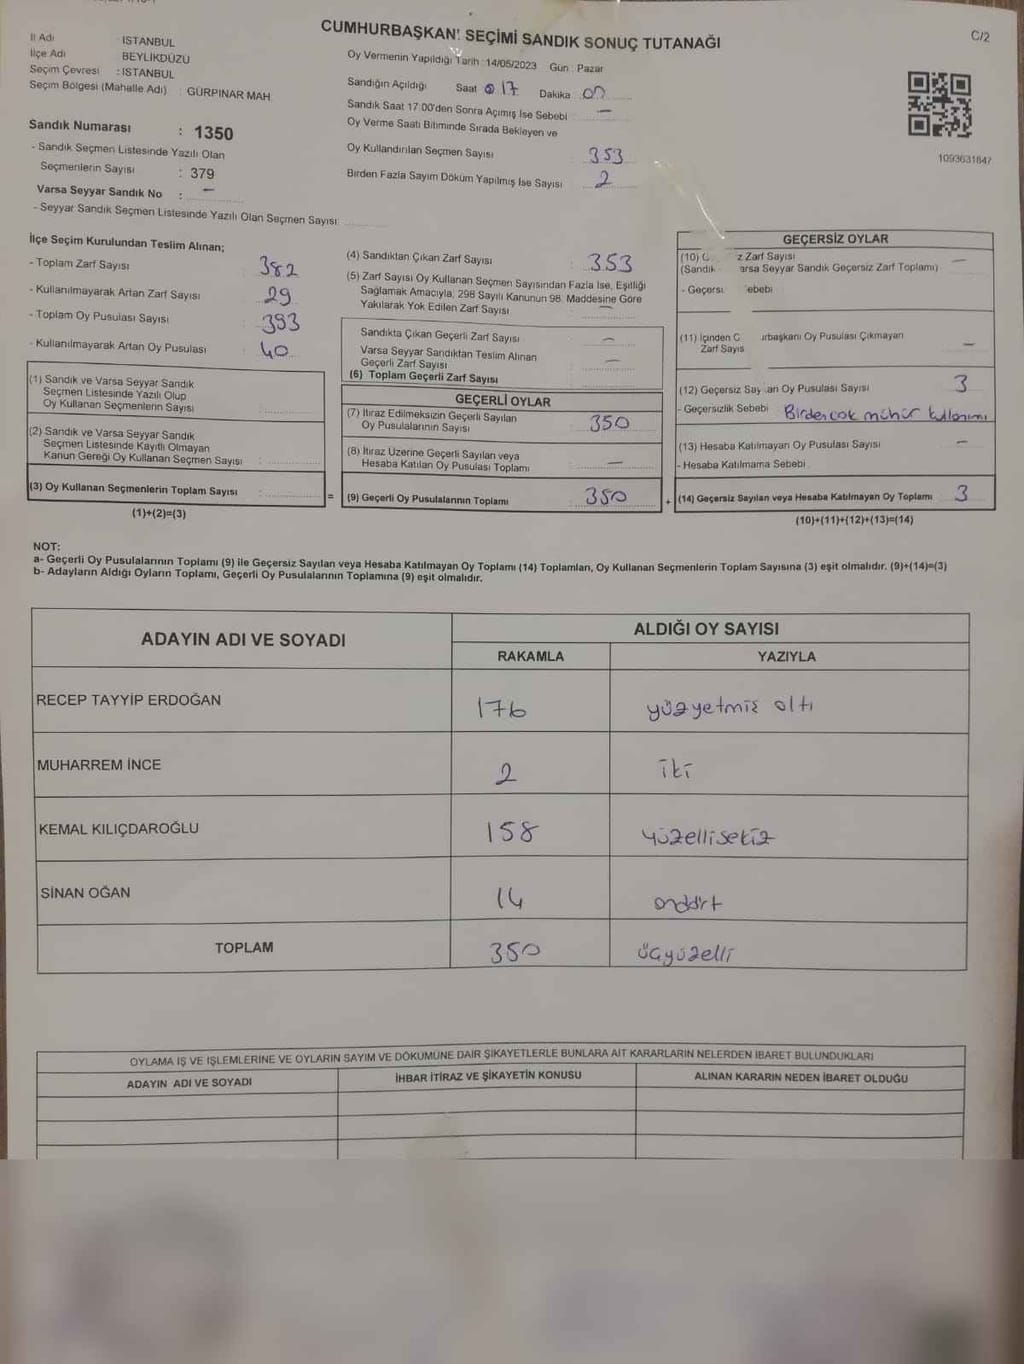 CUMHURBAŞKANI SEÇİMİ SANDIK SONUÇ TUTANAĞI
C/2
İl Adı : İSTANBUL
İlçe Adı BEYLİKDÜZÜ
Seçim Çevresi : İSTANBUL
Seçim Bölgesi (Mahalle Adı) : GÜRPINAR MAH
Sandık Numarası : 1350
- Sandık Seçmen Listesinde Yazılı Olan
Seçmenlerin Sayısı : 379
Varsa Seyyar Sandık No : -
- Seyyar Sandık Seçmen Listesinde Yazılı Olan Seçmen Sayısı:
Oy Vermenin Yapıldığı Tarih : 14/05/2023 Gün : Pazar
Sandığın Açıldığı Saat 17 Dakika 00
Sandık Saat 17:00'den Sonra Açımış İse Sebebi -
Oy Verme Saati Bitiminde Sırada Bekleyen ve
Oy Kullandırılan Seçmen Sayısı 353
Birden Fazla Sayım Döküm Yapılmış İse Sayısı 2
1093631847
İlçe Seçim Kurulundan Teslim Alınan;
- Toplam Zarf Sayısı 382
- Kullanılmayarak Artan Zarf Sayısı 29
- Toplam Oy Pusulası Sayısı 393
- Kullanılmayarak Artan Oy Pusulası 40
(1) Sandık ve Varsa Seyyar Sandık
Seçmen Listesinde Yazılı Olup
Oy Kullanan Seçmenlerin Sayısı
(2) Sandık ve Varsa Seyyar Sandık
Seçmen Listesinde Kayıtlı Olmayan
Kanun Gereği Oy Kullanan Seçmen Sayısı :
(3) Oy Kullanan Seçmenlerin Toplam Sayısı :
(1)+(2)=(3)
(4) Sandıktan Çıkan Zarf Sayısı : 353
(5) Zarf Sayısı Oy Kullanan Seçmen Sayısından Fazla İse, Eşitliği
Sağlamak Amacıyla, 298 Sayılı Kanunun 98. Maddesine Göre
Yakılarak Yok Edilen Zarf Sayısı :
Sandıkta Çıkan Geçerli Zarf Sayısı : -
Varsa Seyyar Sandıktan Teslim Alınan
Geçerli Zarf Sayısı -
(6) Toplam Geçerli Zarf Sayısı
GEÇERLİ OYLAR
(7) İtiraz Edilmeksizin Geçerli Sayılan
Oy Pusulalarının Sayısı 350
(8) İtiraz Üzerine Geçerli Sayılan veya
Hesaba Katılan Oy Pusulası Toplamı -
= (9) Geçerli Oy Pusulalarının Toplamı 350
GEÇERSİZ OYLAR
(10) z Zarf Sayısı -
(Sandık arsa Seyyar Sandık Geçersiz Zarf Toplamı)
- Geçersi ebebi
(11) İçinden C urbaşkanı Oy Pusulası Çıkmayan
Zarf Sayıs -
(12) Geçersiz Say an Oy Pusulası Sayısı 3
- Geçersizlik Sebebi Birden çok mühür kullanımı
(13) Hesaba Katılmayan Oy Pusulası Sayısı -
- Hesaba Katılmama Sebebi
+ (14) Geçersiz Sayılan veya Hesaba Katılmayan Oy Toplamı 3
(10)+(11)+(12)+(13)=(14)
NOT:
a- Geçerli Oy Pusulalarının Toplamı (9) ile Geçersiz Sayılan veya Hesaba Katılmayan Oy Toplamı (14) Toplamları, Oy Kullanan Seçmenlerin Toplam Sayısına (3) eşit olmalıdır. (9)+(14)=(3)
b- Adayların Aldığı Oyların Toplamı, Geçerli Oy Pusulalarının Toplamına (9) eşit olmalıdır.
ADAYIN ADI VE SOYADI ALDIĞI OY SAYISI
RAKAMLA YAZIYLA
RECEP TAYYİP ERDOĞAN 176 yüzyetmiş altı
MUHARREM İNCE 2 iki
KEMAL KILIÇDAROĞLU 158 yüzellisekiz
SİNAN OĞAN 14 ondört
TOPLAM 350 üçyüzelli
OYLAMA İŞ VE İŞLEMLERİNE VE OYLARIN SAYIM VE DÖKÜMÜNE DAİR ŞİKAYETLERLE BUNLARA AİT KARARLARIN NELERDEN İBARET BULUNDUKLARI
ADAYIN ADI VE SOYADI İHBAR İTİRAZ VE ŞİKAYETİN KONUSU ALINAN KARARIN NEDEN İBARET OLDUĞU